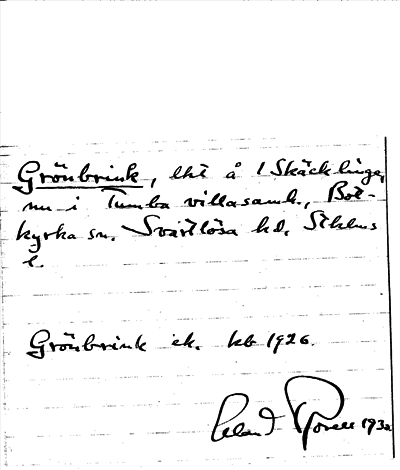 Grönbrink, lht å 1 Skäcklinge,
nu i Tumba villasamh., Bot-
kyrka sn. Svartlösa hd. Sthlms
l.
Grönbrink ek. kb 1926.
1930